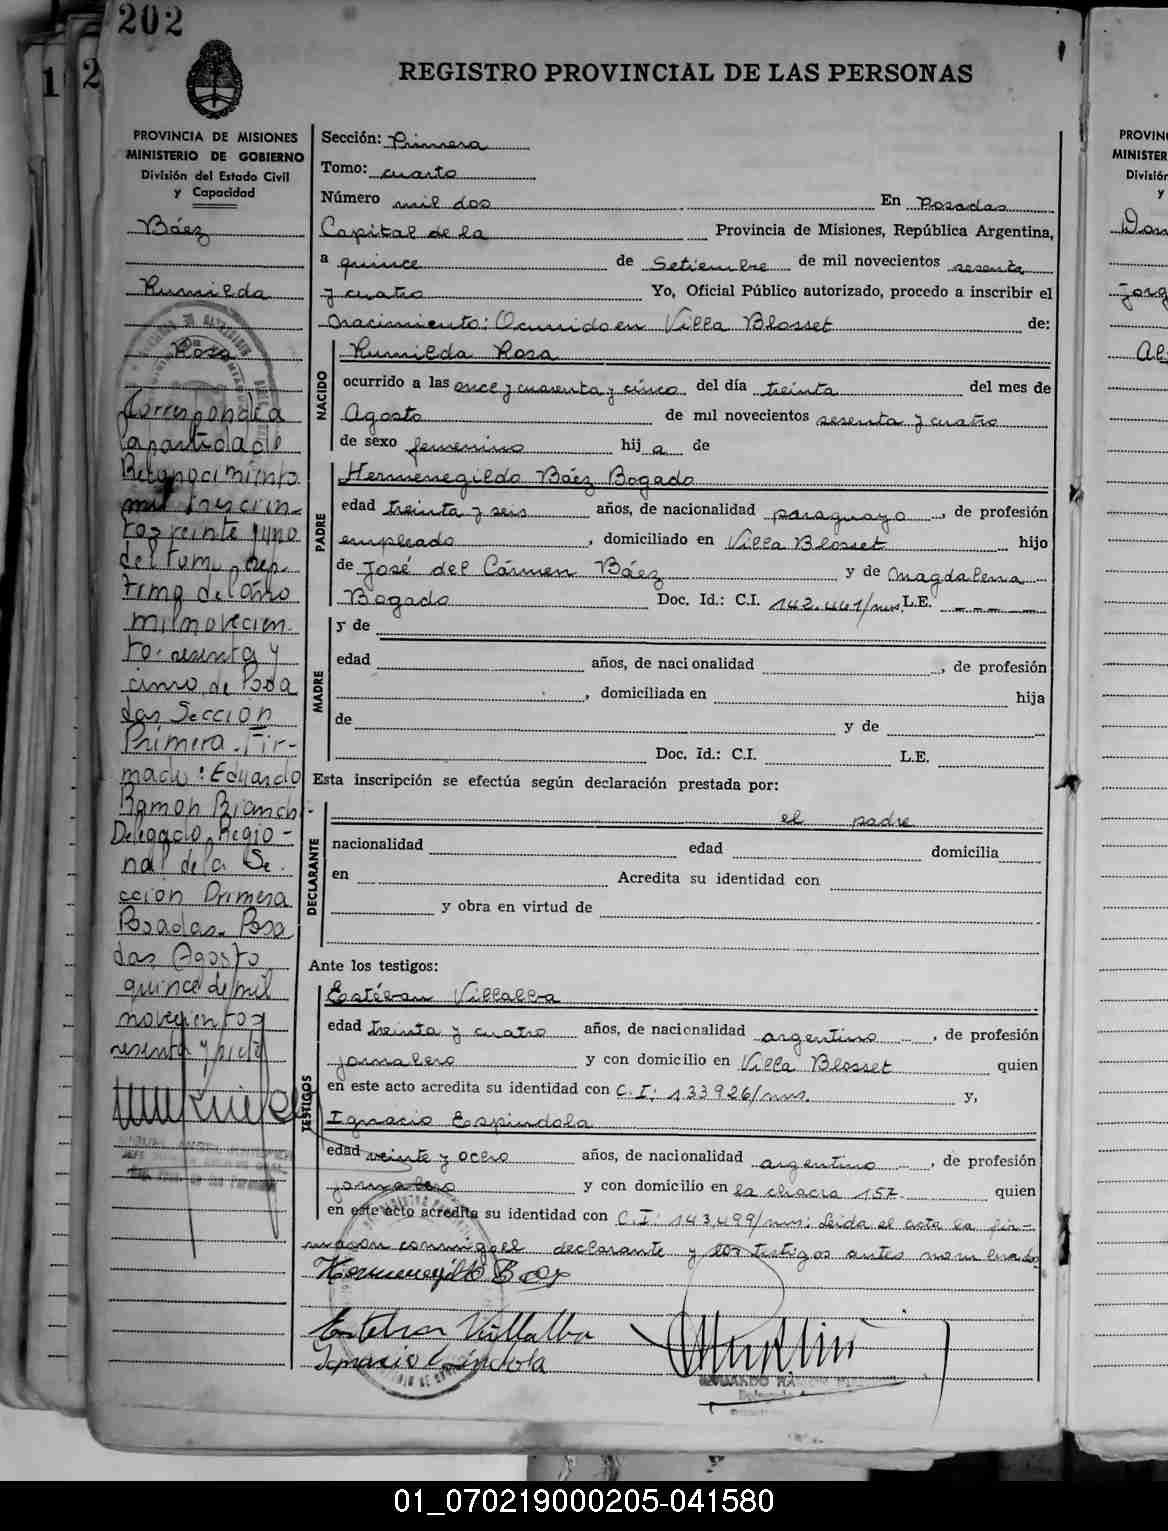 202
REGISTRO PROVINCIAL DE LAS PERSONAS
PROVINCIA DE MISIONES
MINISTERIO DE GOBIERNO
División del Estado Civil
y Capacidad
Báez
Rumilda
Rosa
Corresponde a
la partida de
Reconocimiento
mil trescien-
tos veinte y uno
del tomo sép-
timo del año
mil novecien-
to sesenta y
cinco, de Posa
das Sección
Primera. Fir-
mado: Eduardo
Ramon Bianchi-
Delegado Regio-
nal de la Se-
cción Primera
Posadas. Posa
das, Agosto
quince de mil
novecientos
sesenta y siete
Sección: Primera
Tomo: cuarto
Número mil dos En Posadas
Capital de la Provincia de Misiones, República Argentina,
a quince de Setiembre de mil novecientos sesenta
y cuatro Yo, Oficial Público autorizado, procedo a inscribir el
nacimiento: Ocurrido en Villa Blosset de:
NACIDO
Rumilda Rosa
ocurrido a las once y cuarenta y cinco del día treinta del mes de
Agosto de mil novecientos sesenta y cuatro
de sexo femenino hij a de
PADRE
Hermenegildo Báez Bogado
edad treinta y seis años, de nacionalidad paraguayo, de profesión
empleado, domiciliado en Villa Blosset hijo
de José del Cármen Báez y de Magdalena
Bogado Doc. Id.: C.I. 142.441/mns. L.E. ----
MADRE
y de
edad años, de nacionalidad , de profesión
, domiciliada en hija
de y de
Doc. Id.: C.I. L.E.
Esta inscripción se efectúa según declaración prestada por:
DECLARANTE
el padre
nacionalidad edad domicilia
en Acredita su identidad con
y obra en virtud de
Ante los testigos:
TESTIGOS
Estéban Villalba
edad treinta y cuatro años, de nacionalidad argentino, de profesión
jornalero y con domicilio en Villa Blosset quien
en este acto acredita su identidad con C.I: 133926/mns. y,
Ignacio Espindola
edad veinte y ocho años, de nacionalidad argentino, de profesión
jornalero y con domicilio en la chacra 157 quien
en este acto acredita su identidad con C.I: 143.499/mns: Leida el acta la fir-
maron conmigo el declarante y los testigos antes nombrados
Hermenegildo Baez
Esteban Villalba
Ignacio Espindola
PROVIN
MINISTER
División
y
01_070219000205-041580